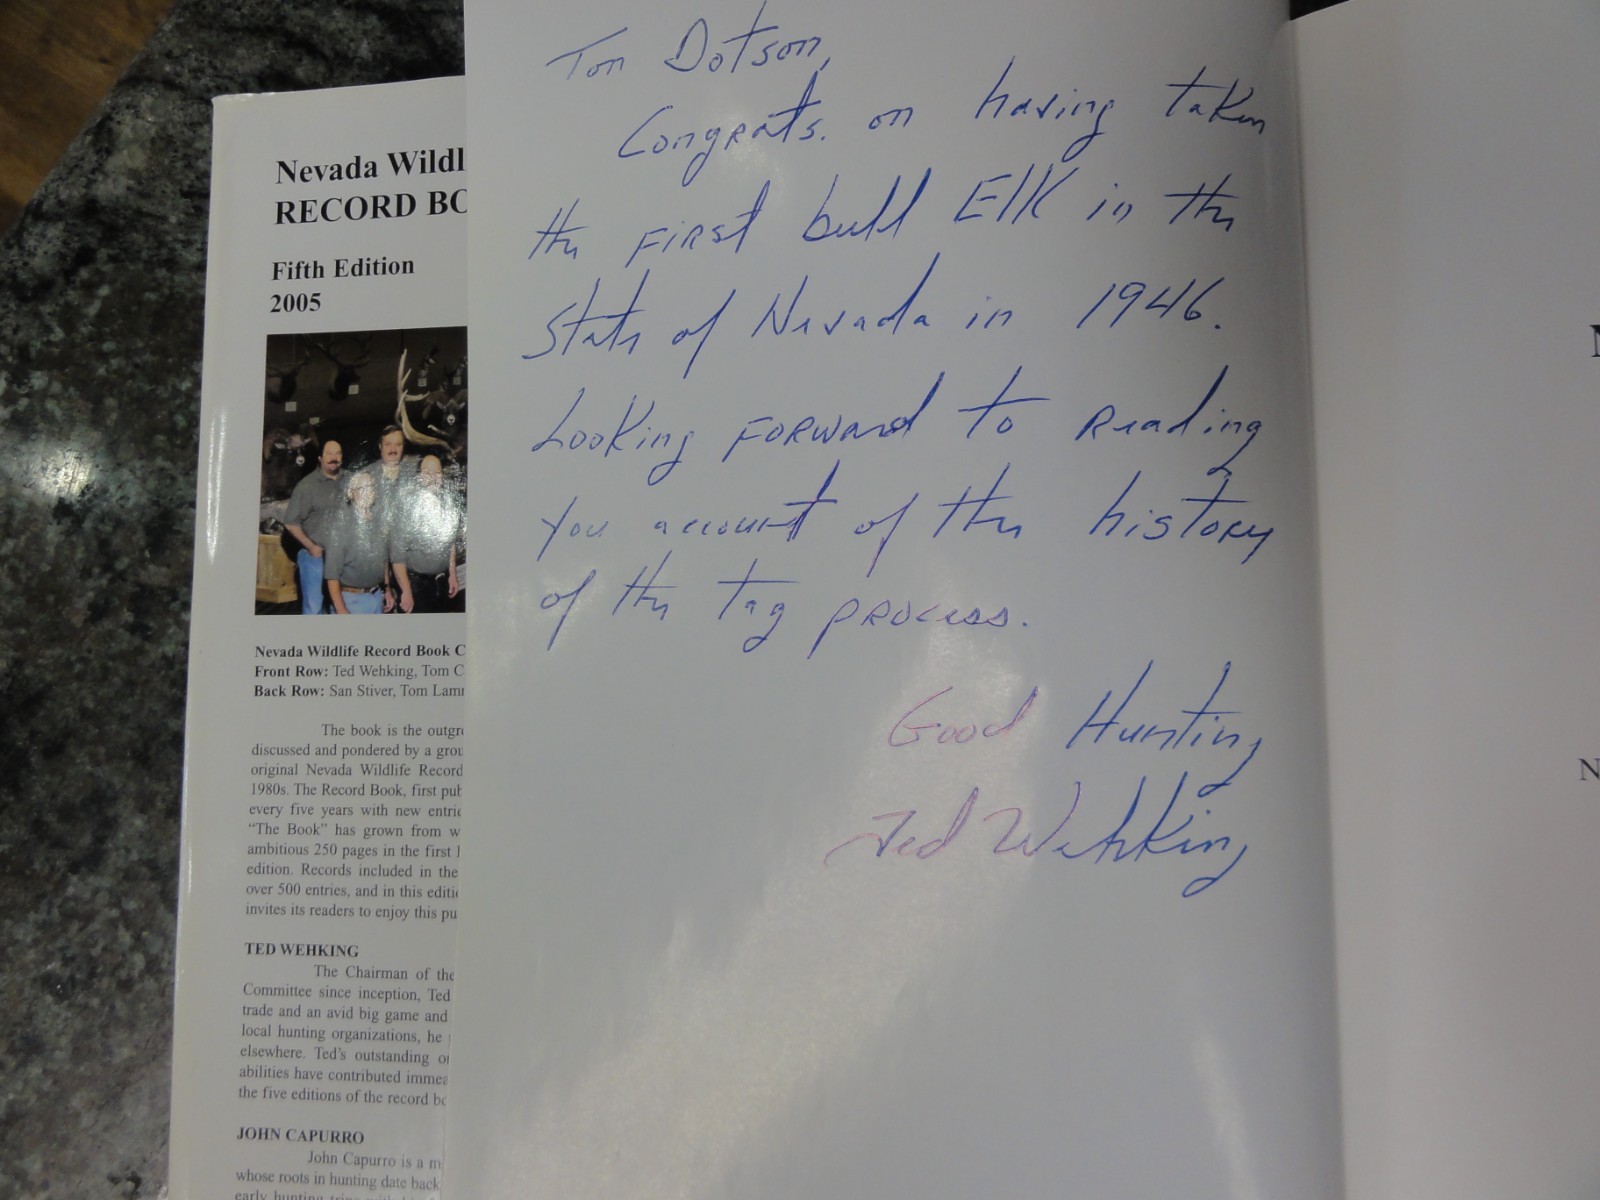 Nevada Wildl
RECORD BO
Fifth Edition
2005
Nevada Wildlife Record Book C
Front Row: Ted Wehking, Tom C
Back Row: San Stiver, Tom Lamm
The book is the outgr
discussed and pondered by a grou
original Nevada Wildlife Record
1980s. The Record Book, first pub
every five years with new entrie
"The Book" has grown from w
ambitious 250 pages in the first
edition. Records included in the
over 500 entries, and in this editi
invites its readers to enjoy this pu
TED WEHKING
The Chairman of the
Committee since inception, Ted
trade and an avid big game and
local hunting organizations, he
elsewhere. Ted's outstanding o
abilities have contributed immea
the five editions of the record bo
JOHN CAPURRO
John Capurro is a m
whose roots in hunting date back
early hunting trips
Tom Dotson,
Congrats. on having taken
the First bull Elk in the
State of Nevada in 1946.
Looking Forward to Reading
you account of the history
of the tag process.
Good Hunting
Ted Wehking
N